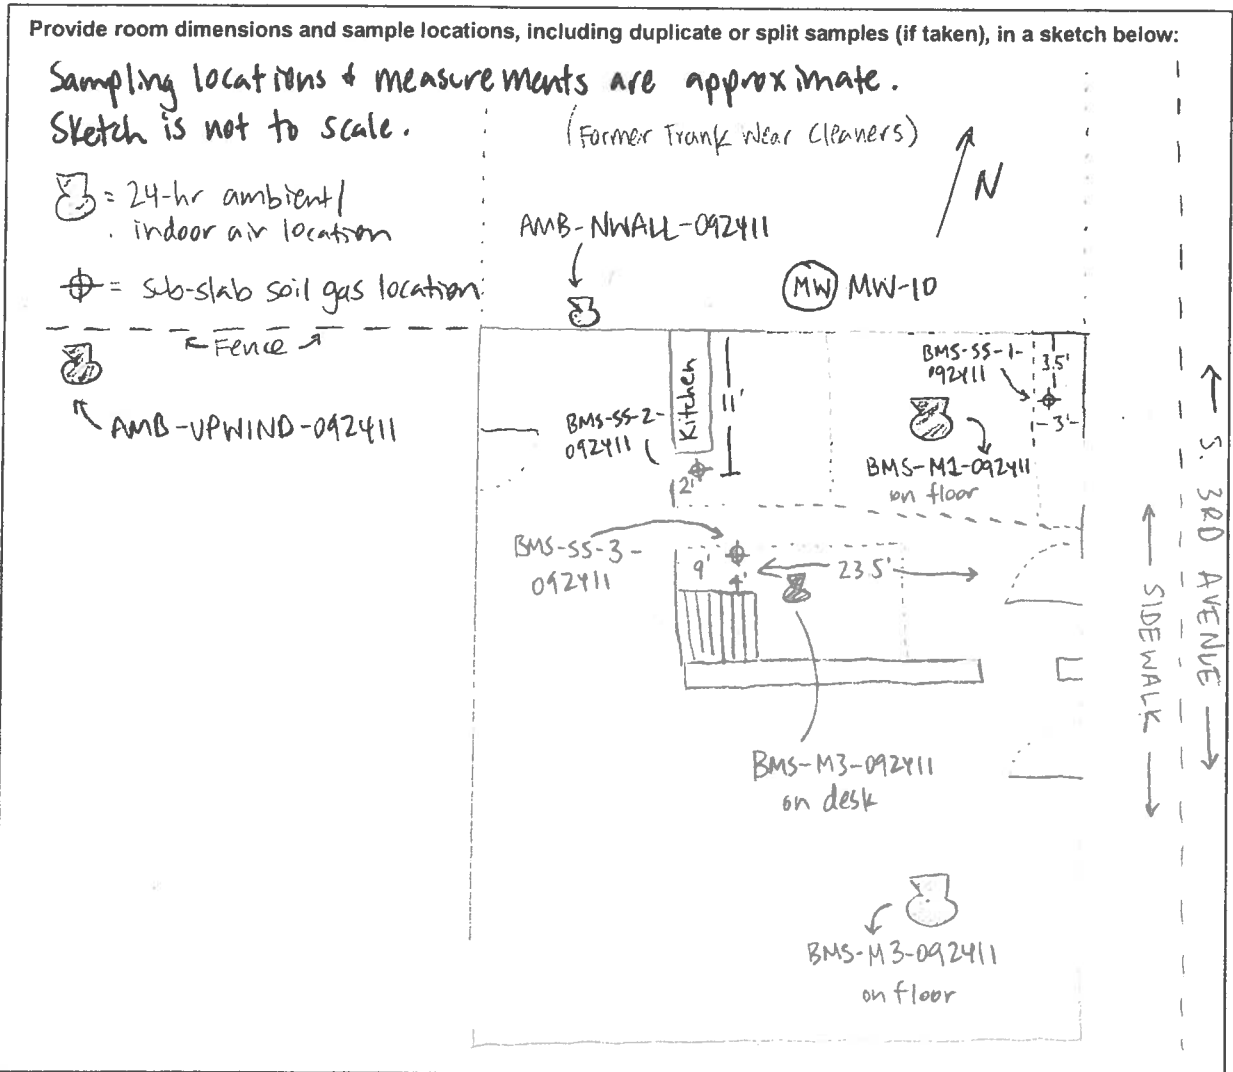 Provide room dimensions and sample locations, including duplicate or split samples (if taken), in a sketch below:
Sampling locations & measurements are approximate.
Sketch is not to scale.
(Former Trank Wear Cleaners)
N
= 24-hr ambient/
indoor air location
= sub-slab soil gas location
AMB-NWALL-092411
MW MW-10
Fence
AMB-UPWIND-092411
Kitchen
11'
BMS-SS-2-
092411
2'
BMS-SS-1-
092411
3.5'
3'
BMS-M1-092411
on floor
BMS-SS-3-
092411
9'
4'
23.5'
BMS-M3-092411
on desk
BMS-M3-092411
on floor
SIDEWALK
S. 3RD AVENUE